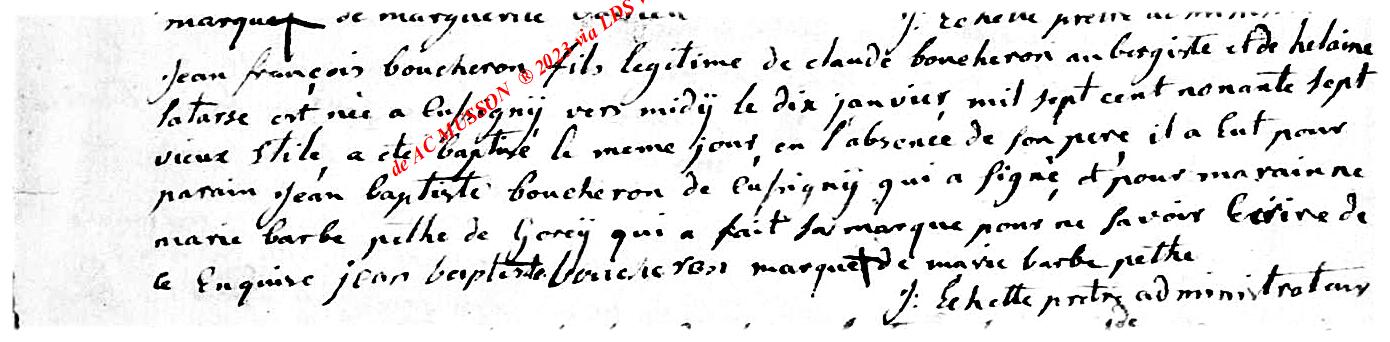 marque de marguerite
J: Lehette pretre administ
Jean françois boucheron fils legitime de claude boucheron aubergiste et de helaine
latasse est née a Cussignÿ vers midÿ le dix janvier mil sept cent nonante sept
vieux stile a eté baptisé le meme jour, en l'absence de son pere il a Eut pour
parain Jean baptiste boucheron de Cussignÿ qui a signé, et pour marainne
marie barbe pethe de Gorcÿ qui a fait sa marque pour ne savoir Ecrire de
ce Enquise jean baptiste boucheron marque de marie barbe pethe
J: Lehette pretre administrateur
de AC MUSSON ® 2023 via LDS